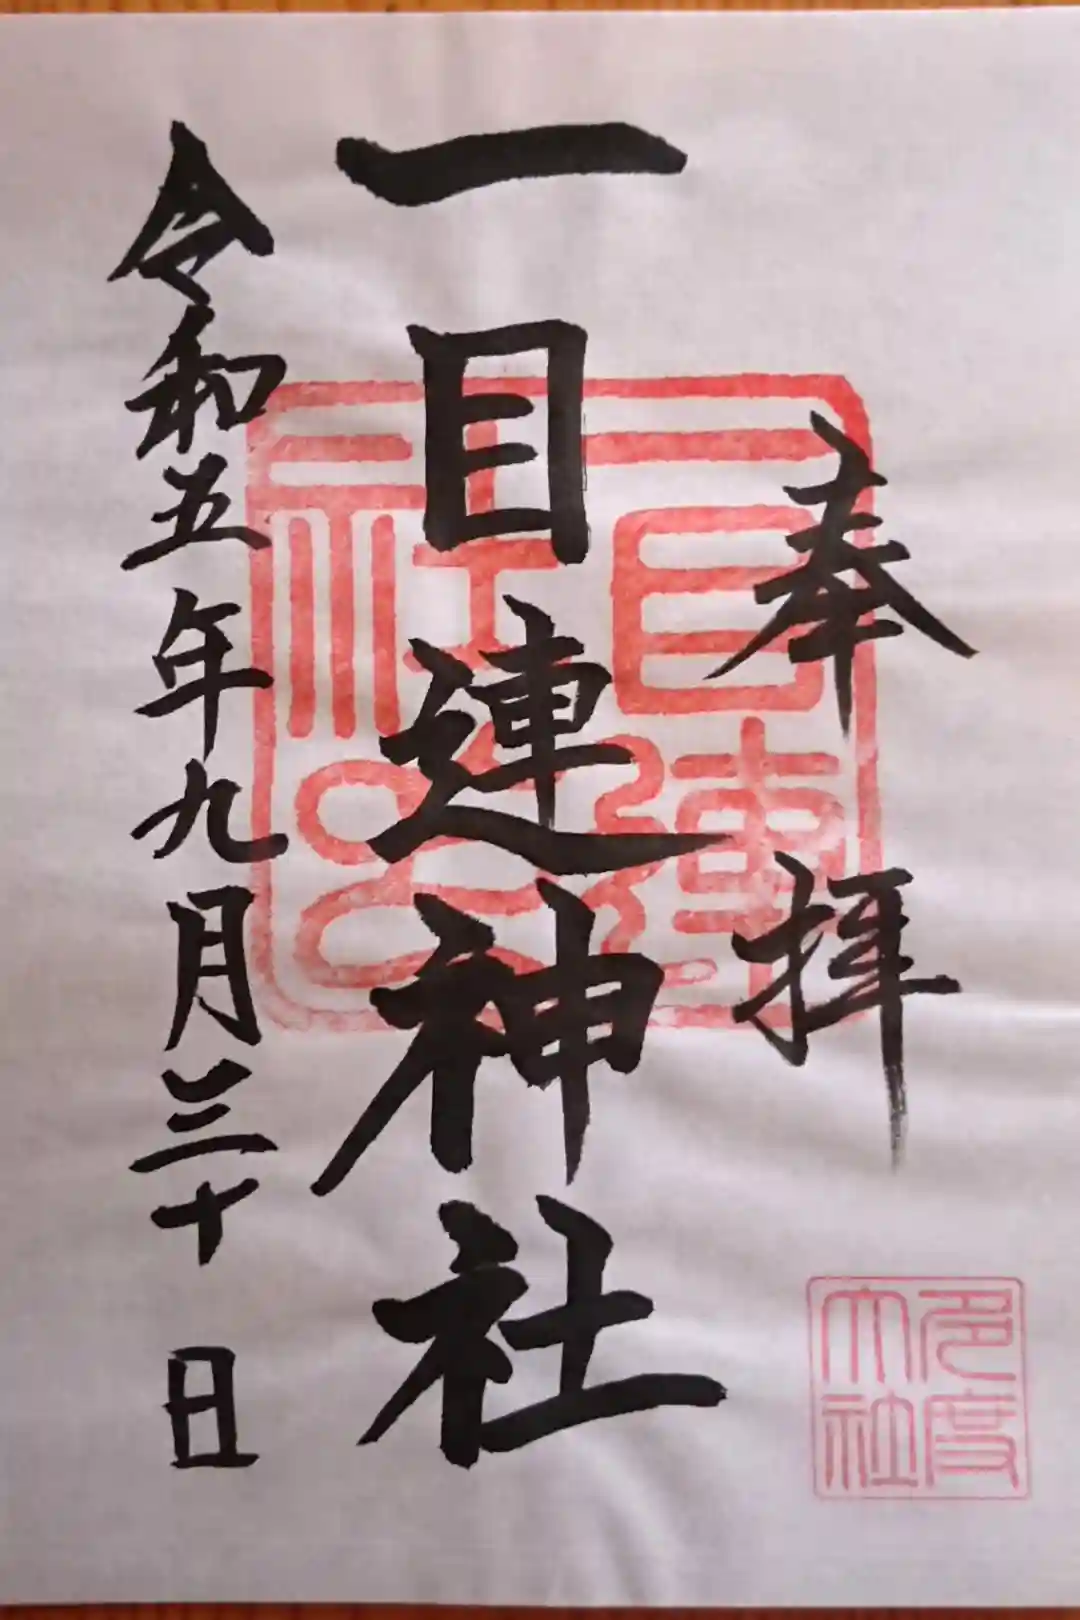 奉拝
一目連神社
令和五年九月三十日
多度
大社